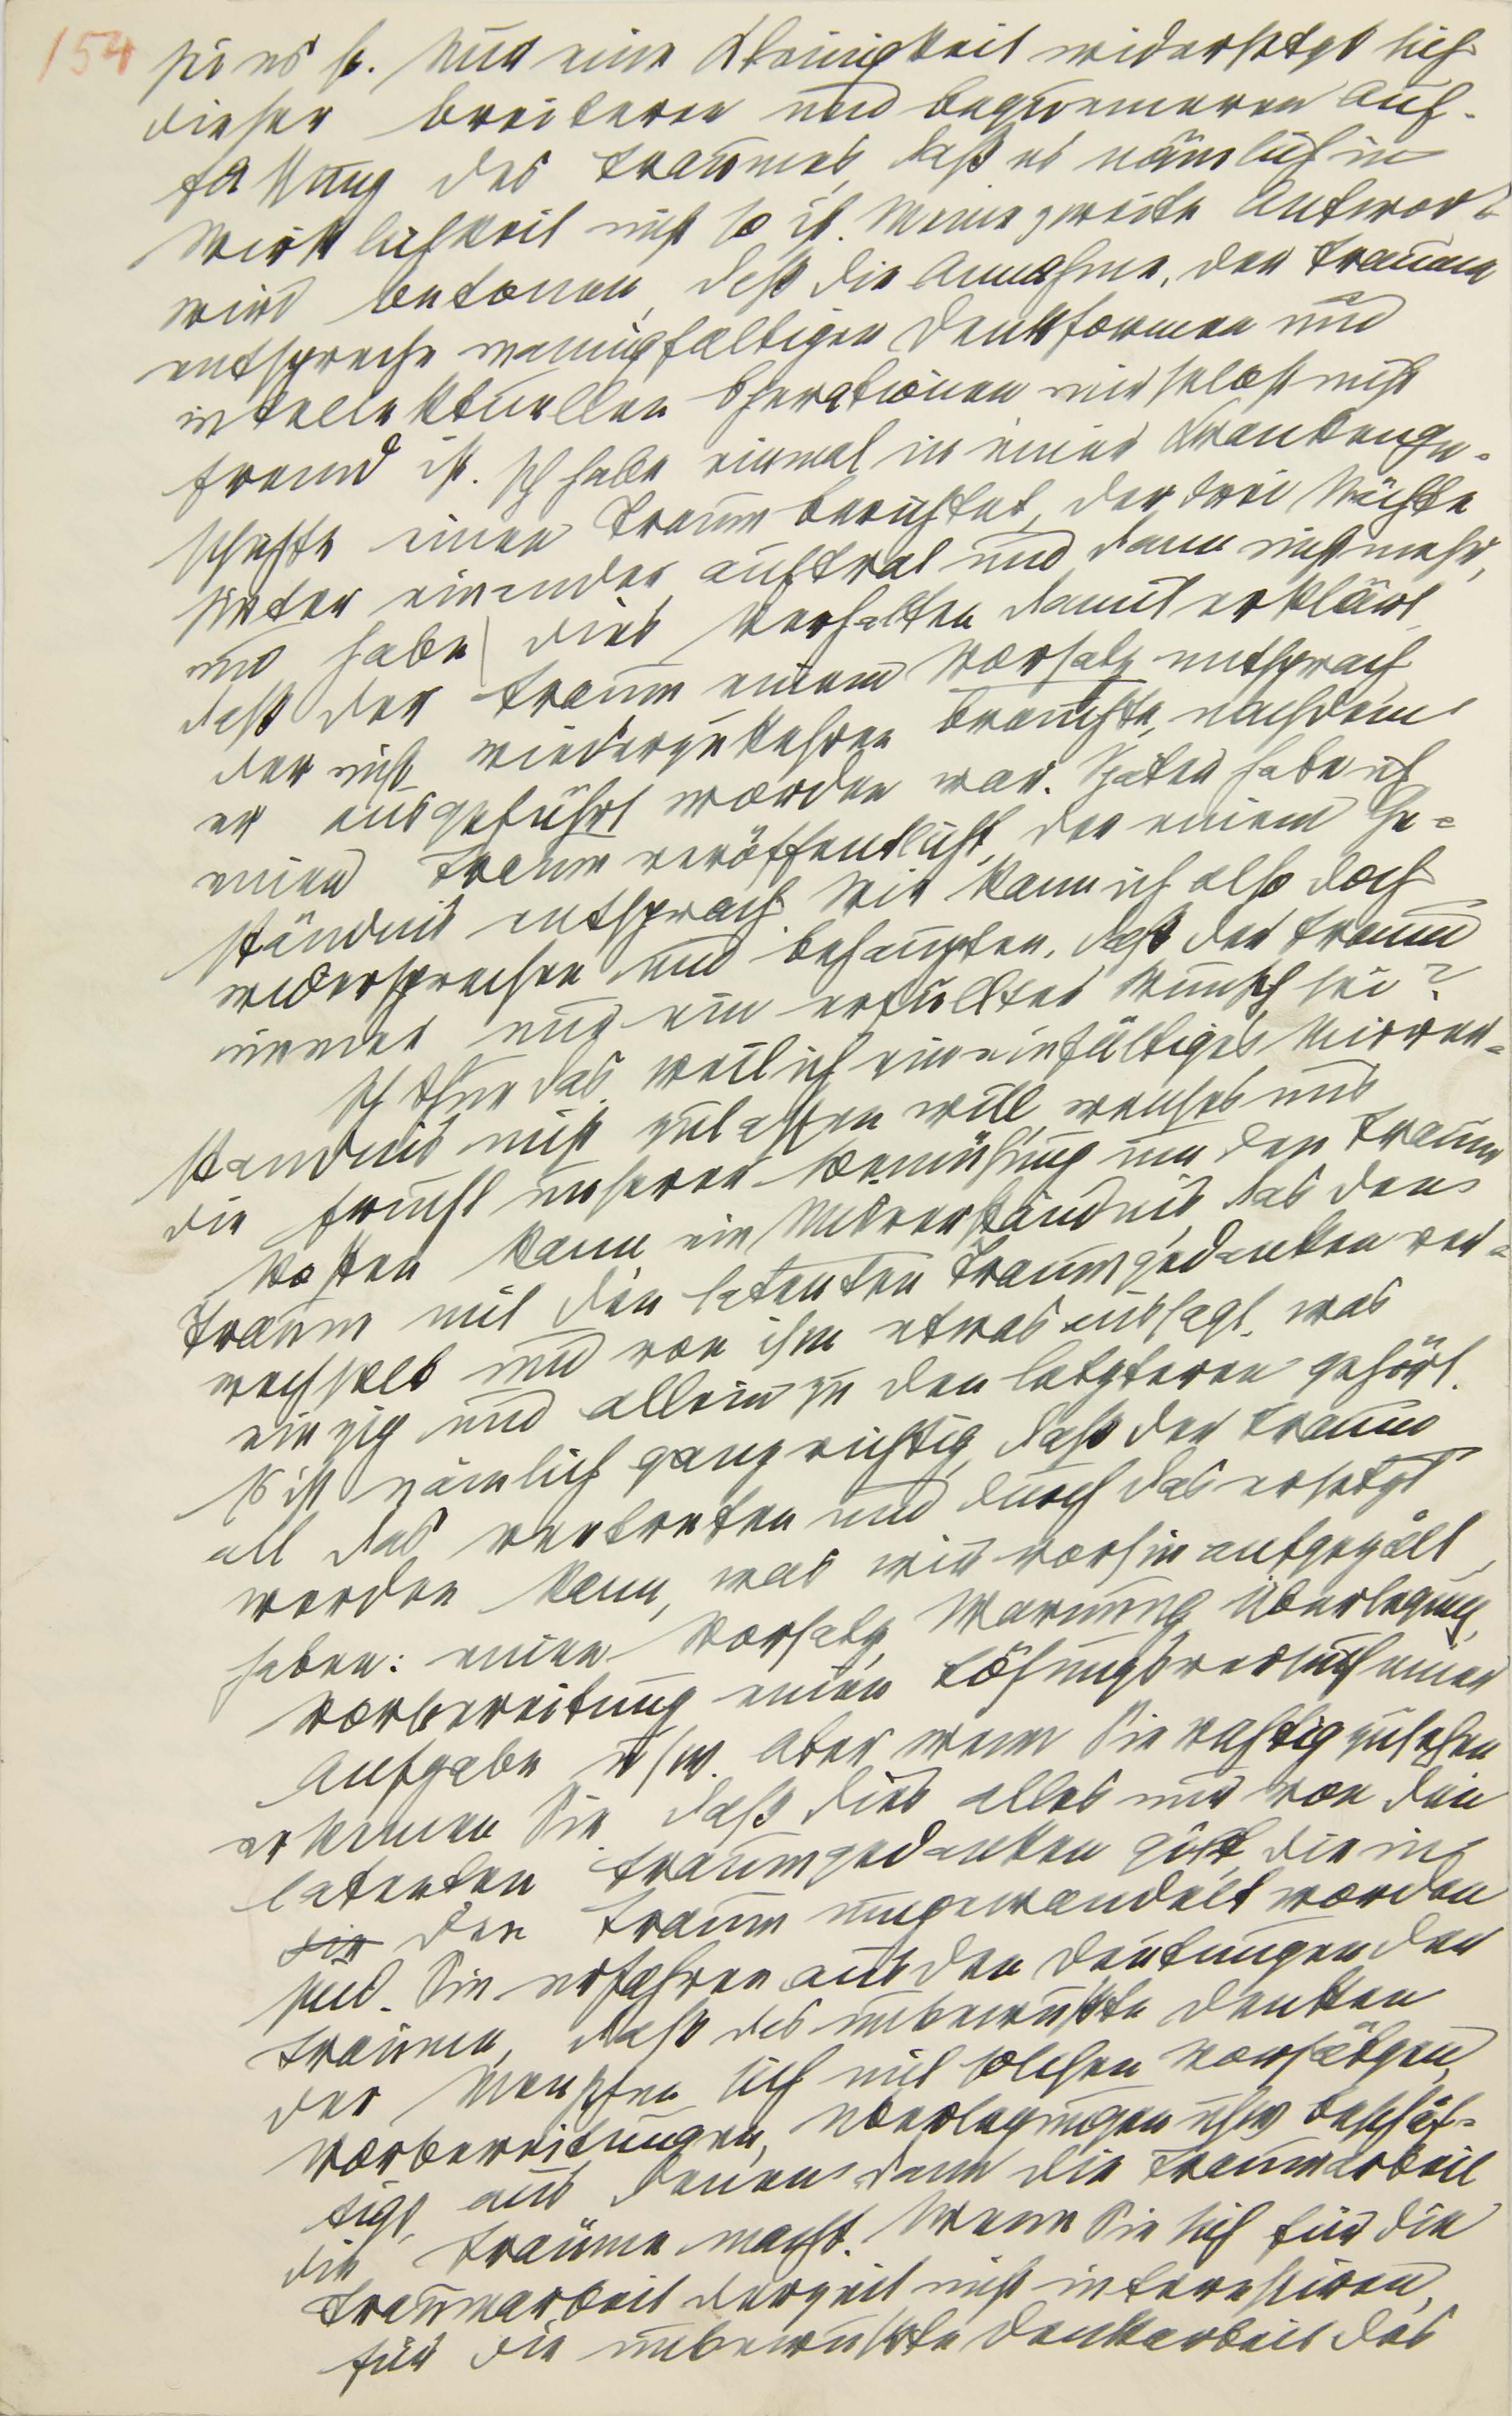 154
sei es so. Nur eine Kleinigkeit widersetzt sich
dieser breiteren und bequemeren Auf-
fassung des Traumes, daß es nämlich in
Wirklichkeit nicht so ist. Meine zweite Antwort
wird betonen, daß die Annahme, der Traum
entspreche mannigfaltigen Denkformen und
intellektuellen Operationen mir selbst nicht
fremd ist. Ich habe einmal in einer Krankenge-
schichte einen Traum berichtet, der drei Nächte
hinter einander auftrat und dann nicht mehr,
und habe dies Verhalten damit erklärt,
daß der Traum einem Vorsatz entsprach,
der nicht wiederzukehren brauchte, nachdem
er ausgeführt worden war. Später habe ich
einen Traum veröffentlicht, der einem Ge-
ständnis entsprach. Wie kann ich also doch
widersprechen und behaupten, daß der Traum
immer nur ein erfüllter Wunsch sei?
Ich thue das, weil ich ein einfältiges Misver-
ständnis nicht zulassen will, welches uns
die Frucht unserer Bemühung um den Traum
kosten kann, ein Misverständnis, das den
Traum mit den latenten Traumgedanken ver-
wechselt und von ihm etwas aussagt, was
einzig und allein zu den letzteren gehört.
Es ist nämlich ganz richtig, daß der Traum
all das vertreten und durch das ersetzt
werden kann, was wir vorhin aufgezält
haben: einen Vorsatz, Warnung, Überlegung,
Vorbereitung, einen Lösungsversuch einer
Aufgabe usw. Aber wenn Sie richtig zusehen
erkennen Sie, daß dies alles nur von den
latenten Traumgedanken gilt, die in
den Traum umgewandelt worden
sind. Sie erfahren aus den Deutungen der
Träume, daß das unbewußte Denken
der Menschen sich mit solchen Vorsätzen,
Vorbereitungen, Überlegungen usw beschäf-
tigt, aus denen dann die Traumarbeit
die Träume macht. Wenn Sie sich für die
Traumarbeit derzeit nicht interessiren,
für die unbewußte Denkarbeit des